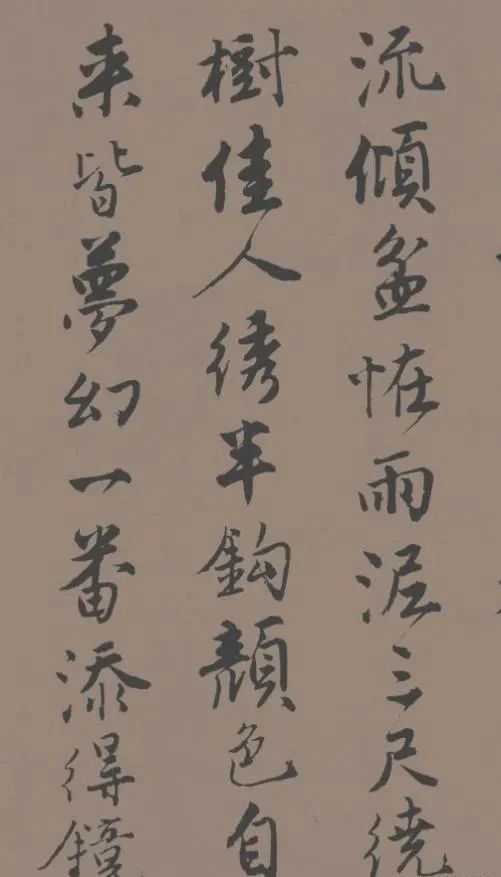 流傾盆恠雨泥三尺繞
樹佳人綉半鈎顔色自
来皆夢幻一番添得鏡